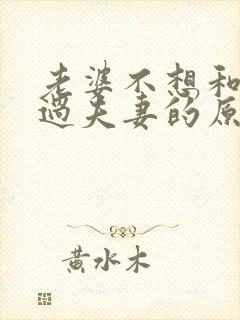 老婆不想和
过夫妻的原
黄水木